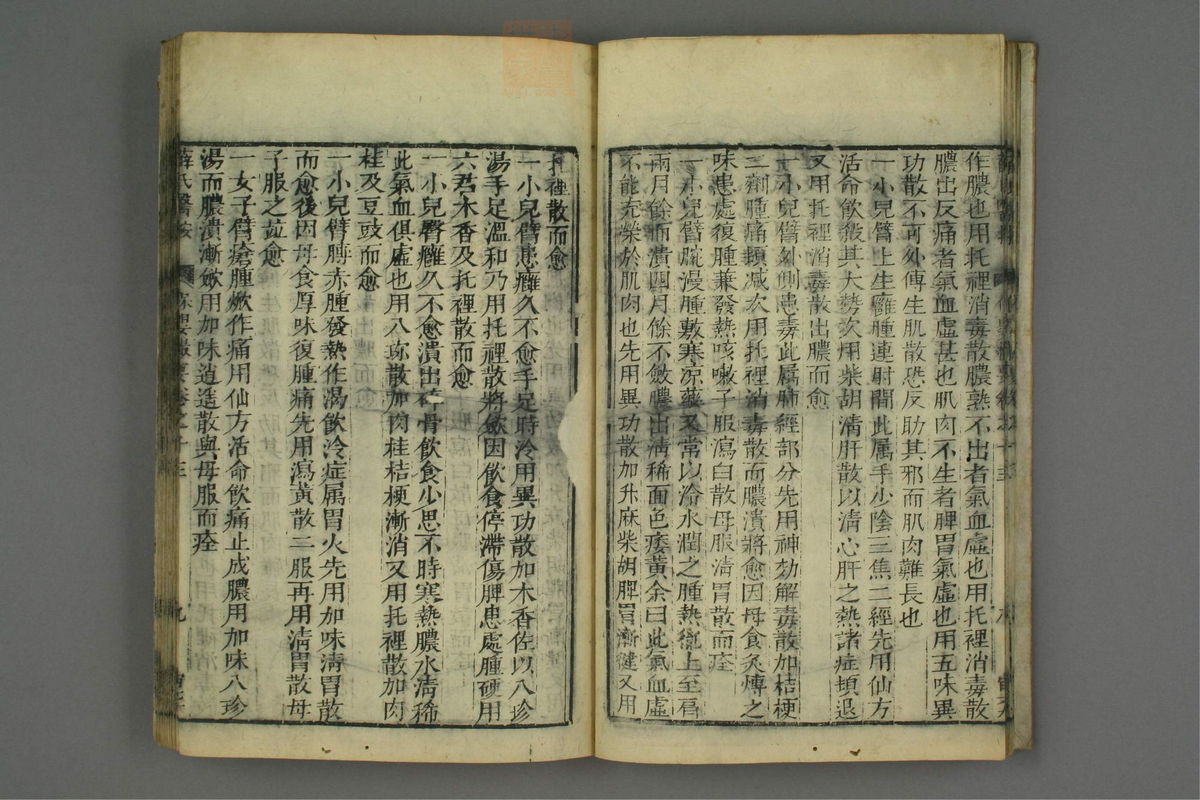 作膿也用托裡消毒散膿熟不出者氣血虛也用托裡消毒散
膿出反痛者氣血虛甚也肌肉不生者脾胃氣虛也用五味異
功散不可外傳生肌散恐反助其邪而肌肉難長也
一小兒臂上生癰腫連肘間此属手少陰三焦二經先用仙方
活命飲殺其大勢次用柴胡淸肝散以淸心肝之熱諸症頓退
又用托裡消毒散出膿而愈
一小兒臂外側患毒此属肺經部分先用神効解毒散加桔梗
二劑腫痛頓减次用托裡消毒散而膿潰將愈因母食炙煿之
味患處復腫兼發熱咳嗽子服瀉白散母服淸胃散而痊
一小兒臂腕漫腫敷寒凉藥又常以冷水潤之腫熱徹上至肩
兩月餘而潰四月餘不斂膿出淸稀面色痿黃余曰此氣血虛
不能充榮於肌肉也先用異功散加升麻柴胡脾胃漸健又用
托裡散而愈
一小兒臂患癰久不愈手足時冷用異功散加木香佐以八珍
湯手足溫和乃用托裡散將愈因飲食停滯傷脾患處腫硬用
六君木香及托裡散而愈
一小兒臀癰久不愈潰出碎骨飲食少思不時寒熱膿水淸稀
此氣血俱虛也用八珎散加肉桂桔梗漸消又用托裡散加肉
桂及豆豉而愈
一小兒臂膊赤腫發熱作渴飲冷症属胃火先用加味淸胃散
而愈後因母食厚味復腫痛先用瀉黃散二服再用淸胃散母
子服之並愈
一女子臂瘡腫焮作痛用仙方活命飲痛止成膿用加味八珍
湯而膿潰漸斂用加味逍遙散與母服而痊
薛氏醫按 保嬰撮要卷之十三 九